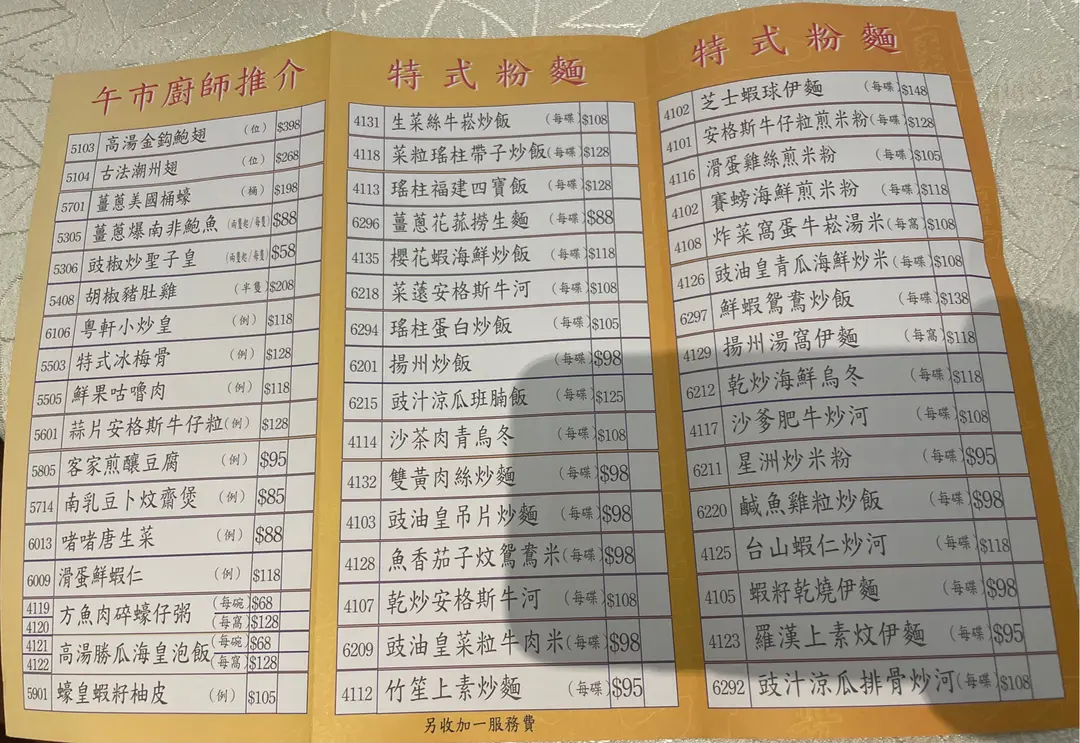 午市廚師推介
5103 高湯金鈎鮑翅 (位) $398
5104 古法潮州翅 (位) $268
5701 薑蔥美國桶蠔 (桶) $198
5305 薑蔥爆南非鮑魚 (兩隻起/每隻) $88
5306 豉椒炒聖子皇 (兩隻起/每隻) $58
5408 胡椒豬肚雞 (半隻) $208
6106 粵軒小炒皇 (例) $118
5503 特式冰梅骨 (例) $128
5505 鮮果咕嚕肉 (例) $118
5601 蒜片安格斯牛仔粒 (例) $128
5805 客家煎釀豆腐 (例) $95
5714 南乳豆卜炆齋煲 (例) $85
6013 啫啫唐生菜 (例) $88
6009 滑蛋鮮蝦仁 (例) $118
4119 方魚肉碎蠔仔粥 (每碗) $68
4120 (每窩) $128
4121 高湯勝瓜海皇泡飯 (每碗) $68
4122 (每窩) $128
5901 蠔皇蝦籽柚皮 (例) $105
特式粉麵
4131 生菜絲牛崧炒飯 (每碟) $108
4118 菜粒瑤柱帶子炒飯 (每碟) $128
4113 瑤柱福建四寶飯 (每碟) $128
6296 薑蔥花菰撈生麵 (每碟) $88
4135 櫻花蝦海鮮炒飯 (每碟) $118
6218 菜薳安格斯牛河 (每碟) $108
6294 瑤柱蛋白炒飯 (每碟) $105
6201 揚州炒飯 (每碟) $98
6215 豉汁涼瓜班腩飯 (每碟) $125
4114 沙茶肉青烏冬 (每碟) $108
4132 雙黃肉絲炒麵 (每碟) $98
4103 豉油皇吊片炒麵 (每碟) $98
4128 魚香茄子炆鴛鴦米 (每碟) $98
4107 乾炒安格斯牛河 (每碟) $108
6209 豉油皇菜粒牛肉米 (每碟) $98
4112 竹笙上素炒麵 (每碟) $95
另收加一服務費
特式粉麵
4102 芝士蝦球伊麵 (每碟) $148
4101 安格斯牛仔粒煎米粉 (每碟) $128
4116 滑蛋雞絲煎米粉 (每碟) $105
4102 賽螃海鮮煎米粉 (每碟) $118
4108 炸菜窩蛋牛崧湯米 (每窩) $108
4126 豉油皇青瓜海鮮炒米 (每碟) $108
6297 鮮蝦鴛鴦炒飯 (每碟) $138
4129 揚州湯窩伊麵 (每窩) $118
6212 乾炒海鮮烏冬 (每碟) $118
4117 沙爹肥牛炒河 (每碟) $108
6211 星洲炒米粉 (每碟) $95
6220 鹹魚雞粒炒飯 (每碟) $98
4125 台山蝦仁炒河 (每碟) $118
4105 蝦籽乾燒伊麵 (每碟) $98
4123 羅漢上素炆伊麵 (每碟) $95
6292 豉汁涼瓜排骨炒河 (每碟) $108